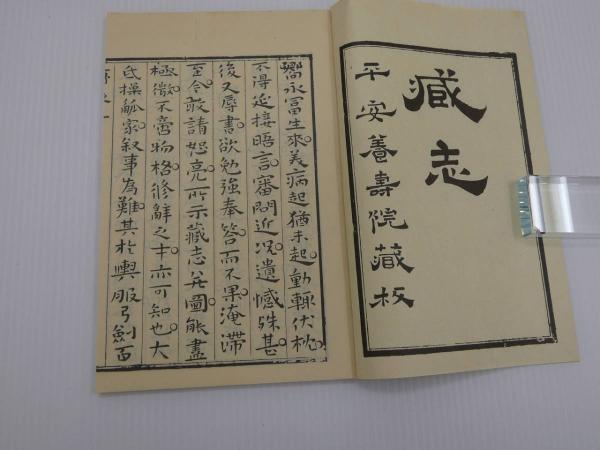 臧志
平安養壽院藏板
嚮永冨生來美病起猶未起動輙伏枕
不得延接晤言審問近况遺憾殊甚
後又辱書欲勉強奉答而不果淹滯
至今敢請恕亮所示藏志并圖能盡
極微不啻物格修辭之才亦可知也大
氐操觚家叙事為難其於輿服弓劍百